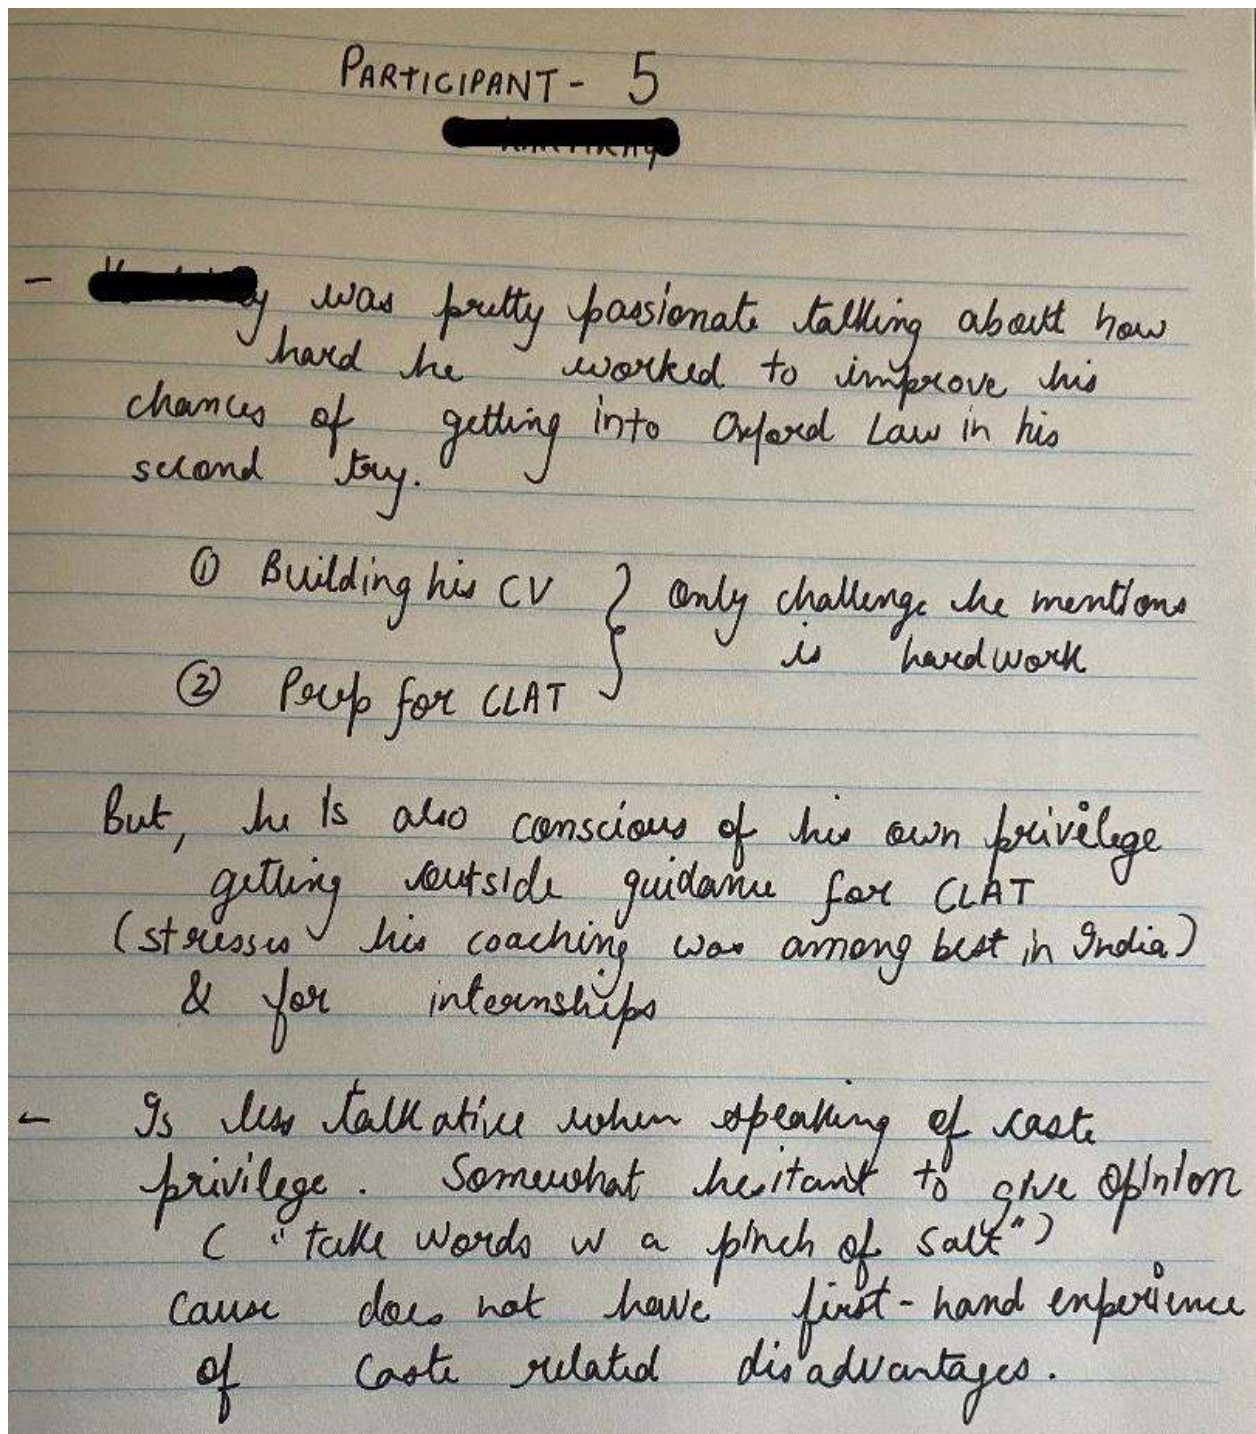 PARTICIPANT - 5
- was pretty passionate talking about how
hard he worked to improve his
chances of getting into Oxford Law in his
second try.
① Building his CV } Only challenge he mentions
is hardwork
② Prep for CLAT
But, he is also conscious of his own privilege
getting outside guidance for CLAT
(stresses his coaching was among best in India)
& for internships
- Is less talkative when speaking of caste
privilege. Somewhat hesitant to give opinion
( "take words w a pinch of salt")
cause does not have first-hand experience
of caste related disadvantages.